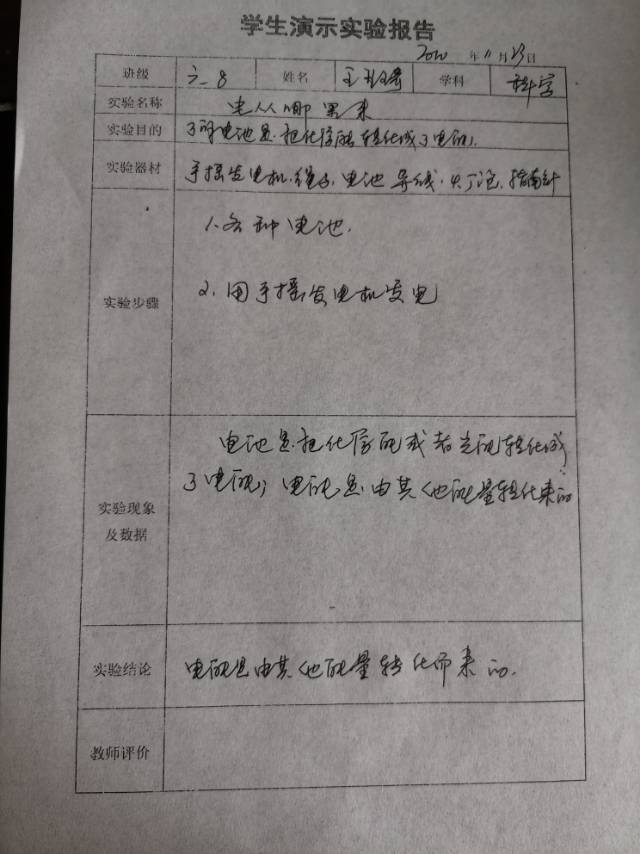 学生演示实验报告
2020 年 11 月 23 日
班级 六.8 姓名 王 学科 科学
实验名称 电从哪里来
实验目的 了解电池是把化学能转化成了电能。
实验器材 手摇发电机、电池、导线、小灯泡、指南针
1、各种电池.
实验步骤 2、用手摇发电机发电
电池是把化学能或者光能转化成
了电能；电能是由其他能量转化来的
实验现象
及数据
实验结论 电能是由其他能量转化而来的.
教师评价